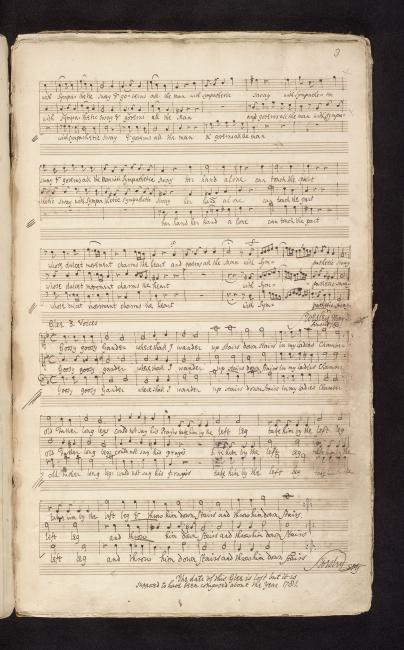 3
with Sympathetic sway & governs all the man with sympathetic sway with sympathetic
with Sympathetic sway & governs all the Man and governs all the man with Sympa-
with sympathetic sway & governs all the man & governs all the man
sway & governs all the Man with Sympathetic sway her hand alone can touch the part
thetic sway with Sympathetic Sympathetic sway her hand alone can touch the part
her hand her hand alone can touch the part
whose dulcet movement charms the heart and governs all the Man with Sym- pathetic sway
whose dulcet movement charms the heart with Sym- pathetic sway
whose dulcet movement charms the heart with Sym- pathetic
Glee 3. Voices
Goosy goosy Gander where shall I wander up stairs down Stairs in my Ladies Chamber
Goosy goosy Gander where shall I wander up stairs down Stairs in my Ladies Chamber
Goosy goosy Gander where shall I wander up stairs down Stairs in my Ladies Chamber
old Father long legs could not say his Prayers take him by the left leg take him by the left leg
old Father long legs could not say his prayers take him by the left leg
old Father long legs could not say his prayers take him by the left leg
take him by the left leg & throw him down Stairs and throw him down Stairs
left leg and throw him down Stairs and throw him down Stairs
left leg and throw him down Stairs and throw him down Stairs
The date of this Glee is lost but it is
supposed to have been composed about the Year 1781.